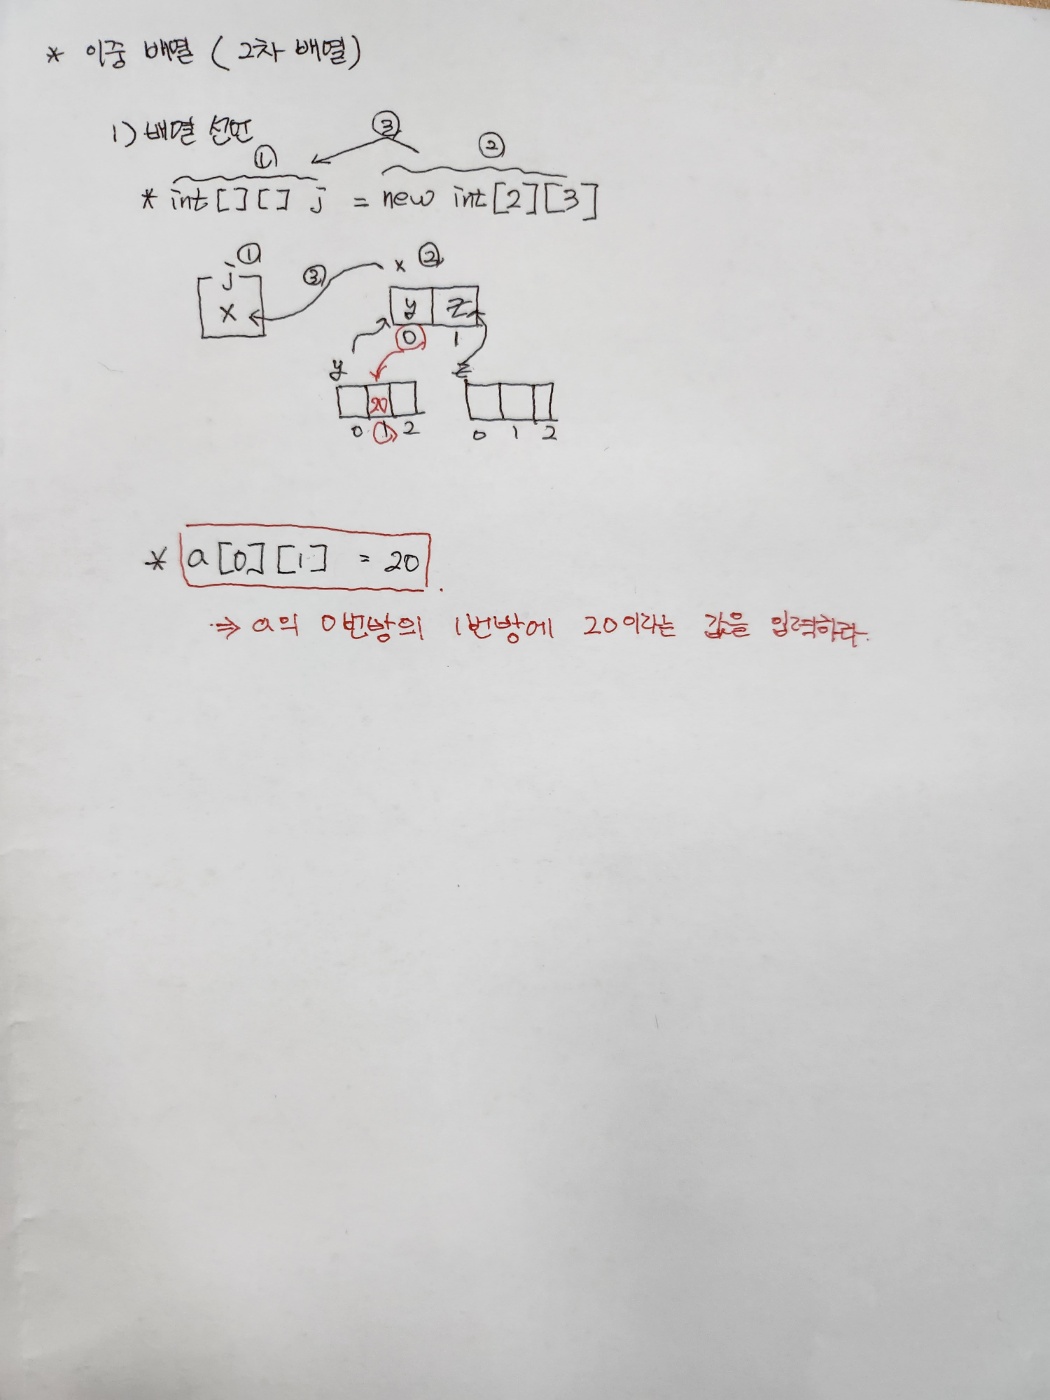 * 이중 배열 ( 2차 배열)
1) 배열 선언
③
① ②
* int[][] j = new int[2][3]
① ② ③
j x
x y z
0 1
y z
20
0 1 2 0 1 2
* a[0][1] = 20
⇒ a의 0번방의 1번방에 20이라는 값을 입력하라.